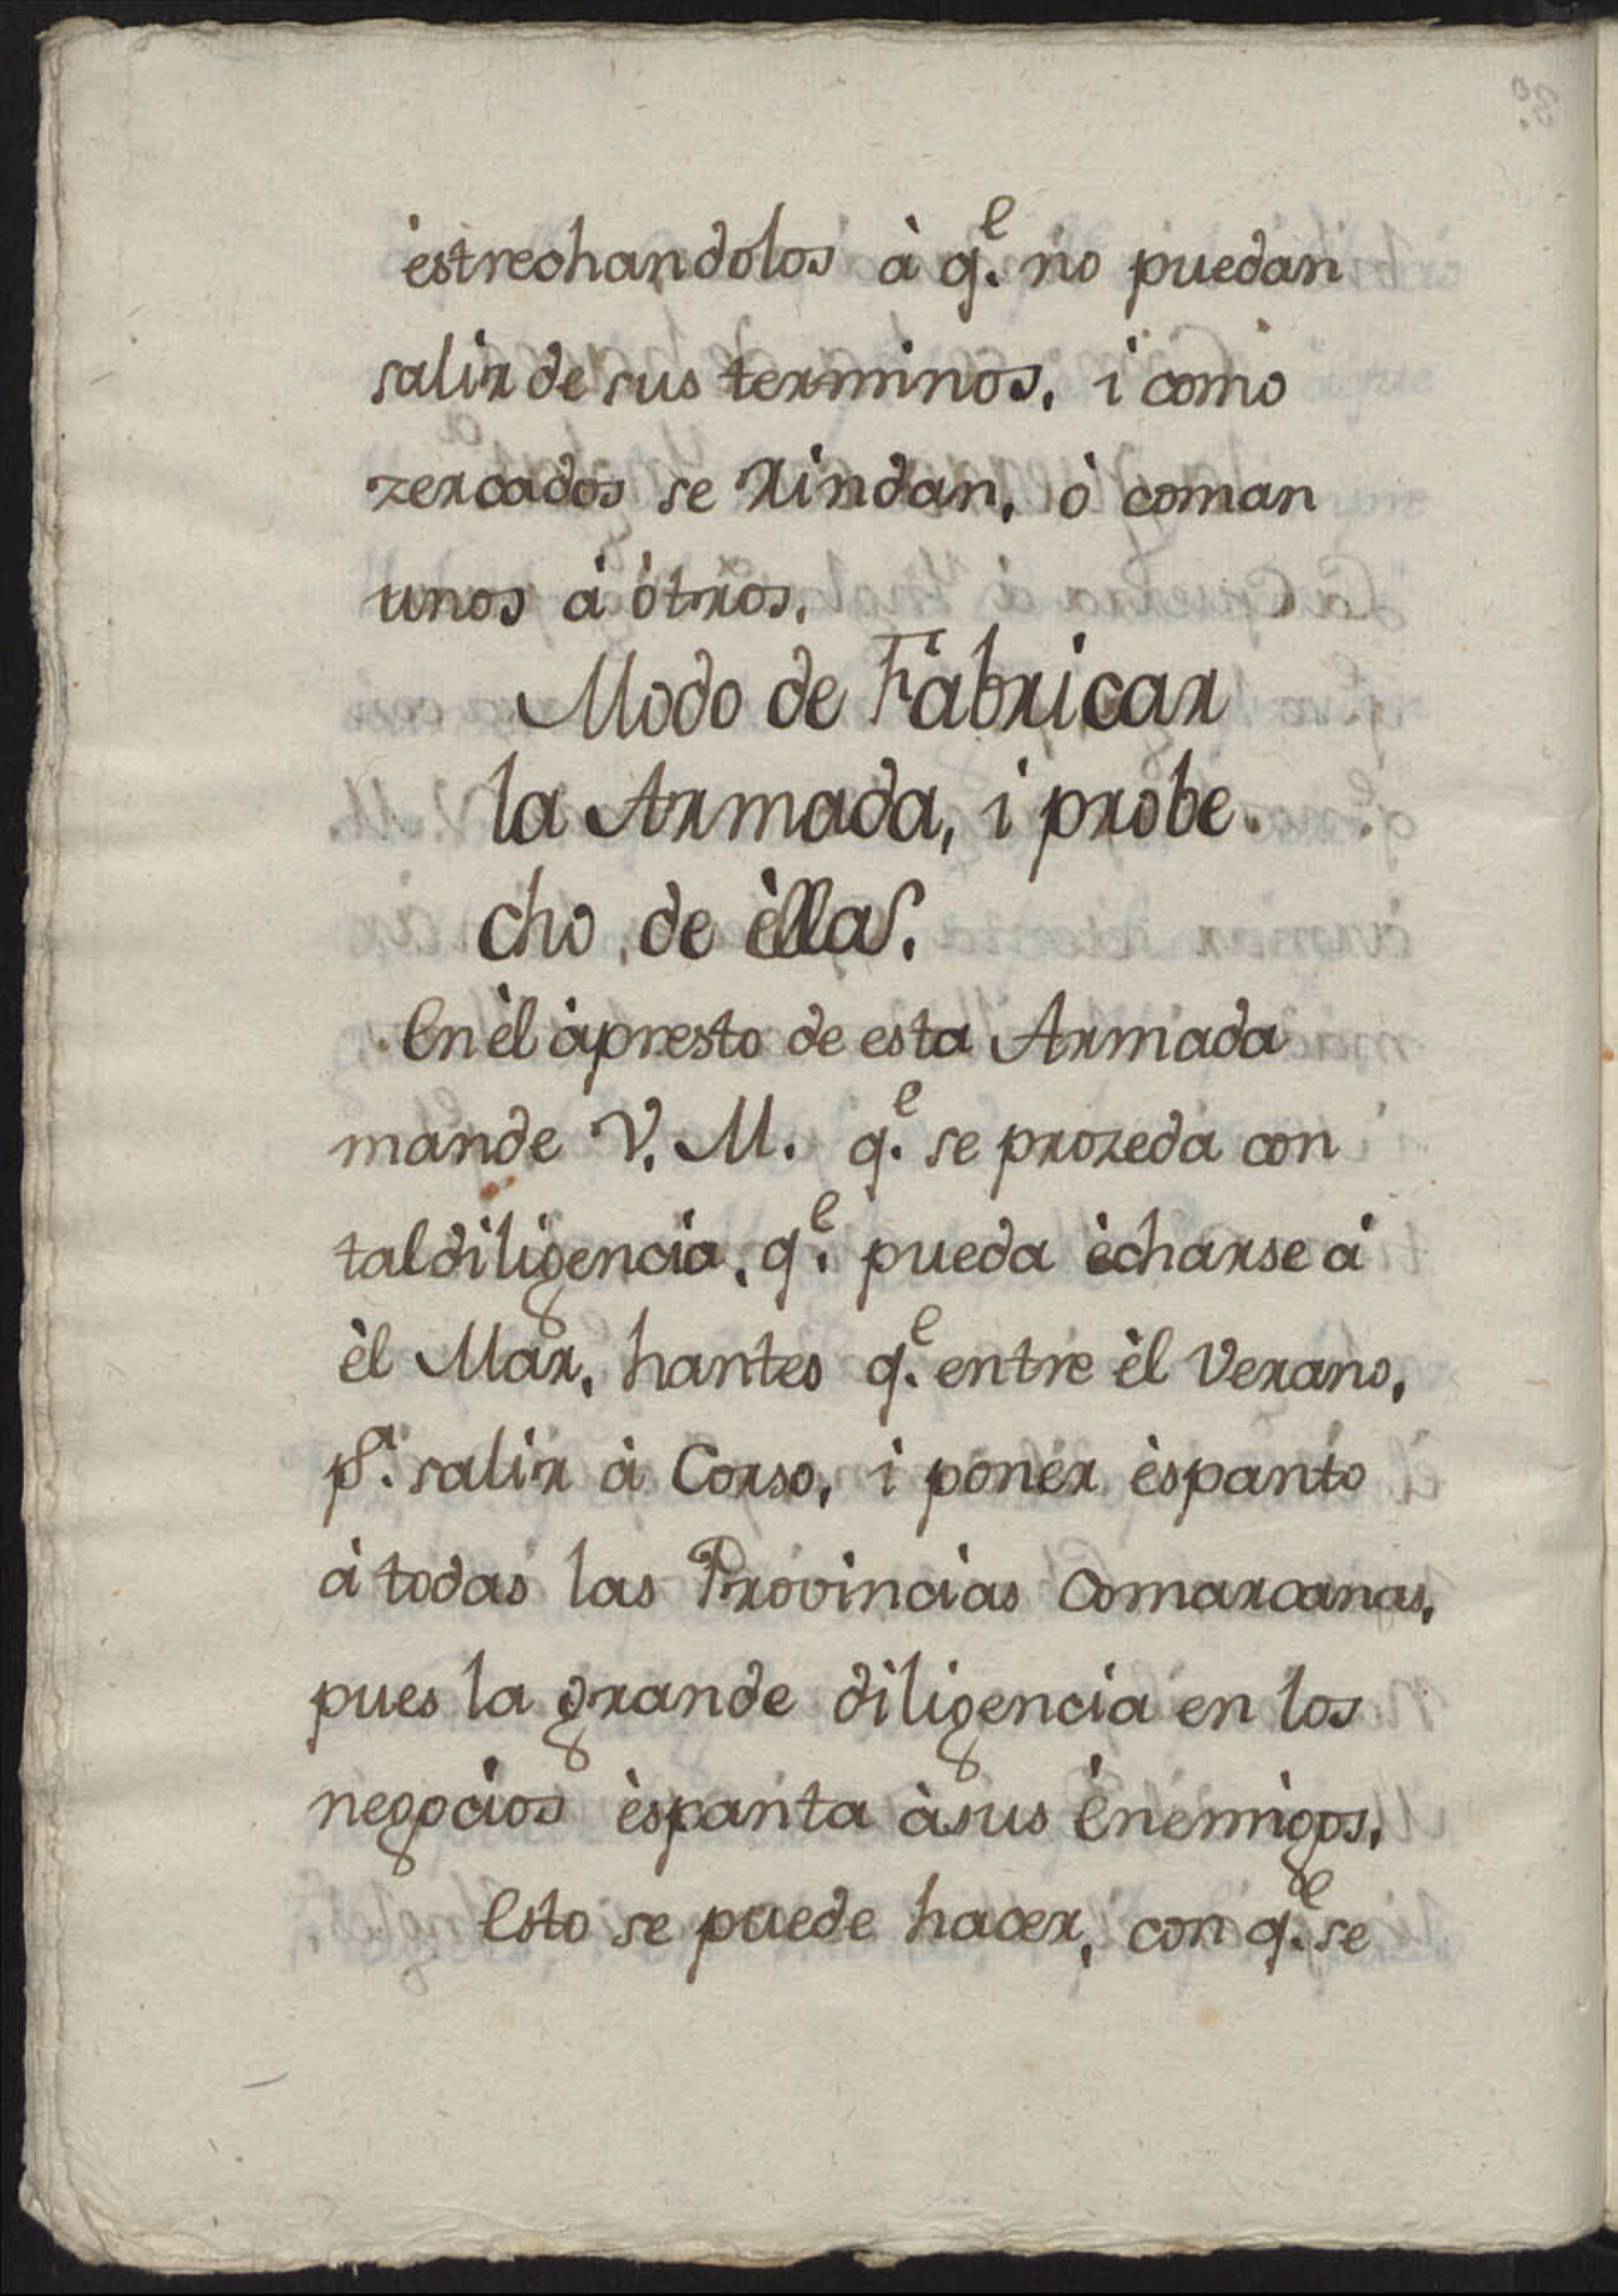 èstrechandolos à q.e no puedan
salir de sus terminos, i como
zercados se rindan, ò coman
unos à òtros.
Modo de Fabricar
la Armada, i probe-
cho de èlla.
En èl àpresto de esta Armada
mande V. M. q.e se prozeda con
tal diligencia, q.e pueda ècharse à
èl Mar, hantes q.e entre èl Verano,
p.a salir à Corso, i poner èspanto
à todas las Provincias Comarcanas,
pues la grande diligencia en los
negocios èspanta à sus Enemigos.
Esto se puede hacer, con q.e se